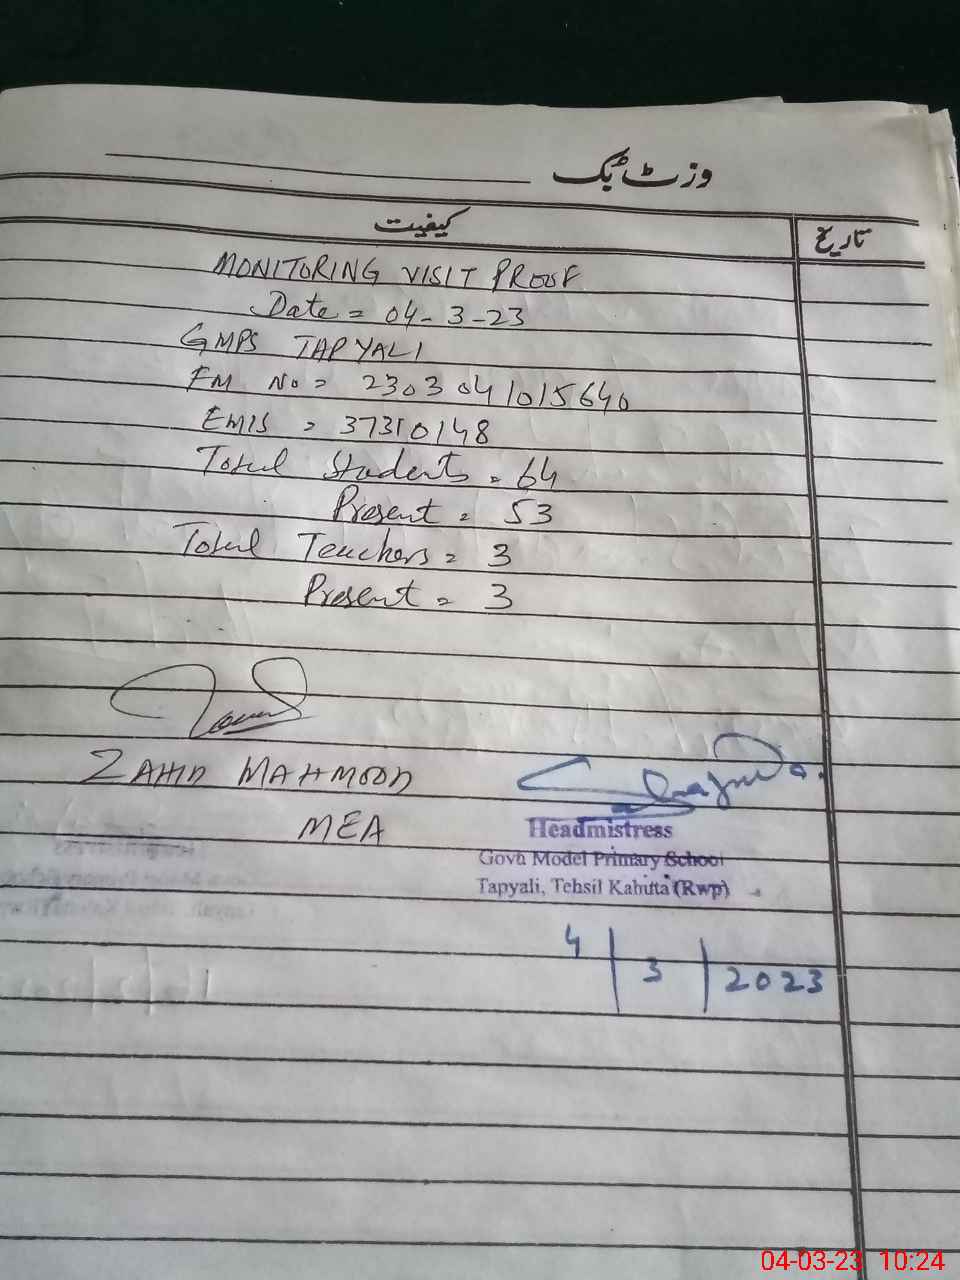 وزٹ بک
کیفیت
تاریخ
MONITORING VISIT PROOF
Date = 04-3-23
GMPS TAPYALI
FM No = 2303041015640
EMIS = 37310148
Total Students = 64
Present = 53
Total Teachers = 3
Present = 3
ZAHID MAHMOOD
MEA
Headmistress
Govt Model Primary School
Tapyali, Tehsil Kahuta (Rwp)
4/3/2023
04-03-23 10:24